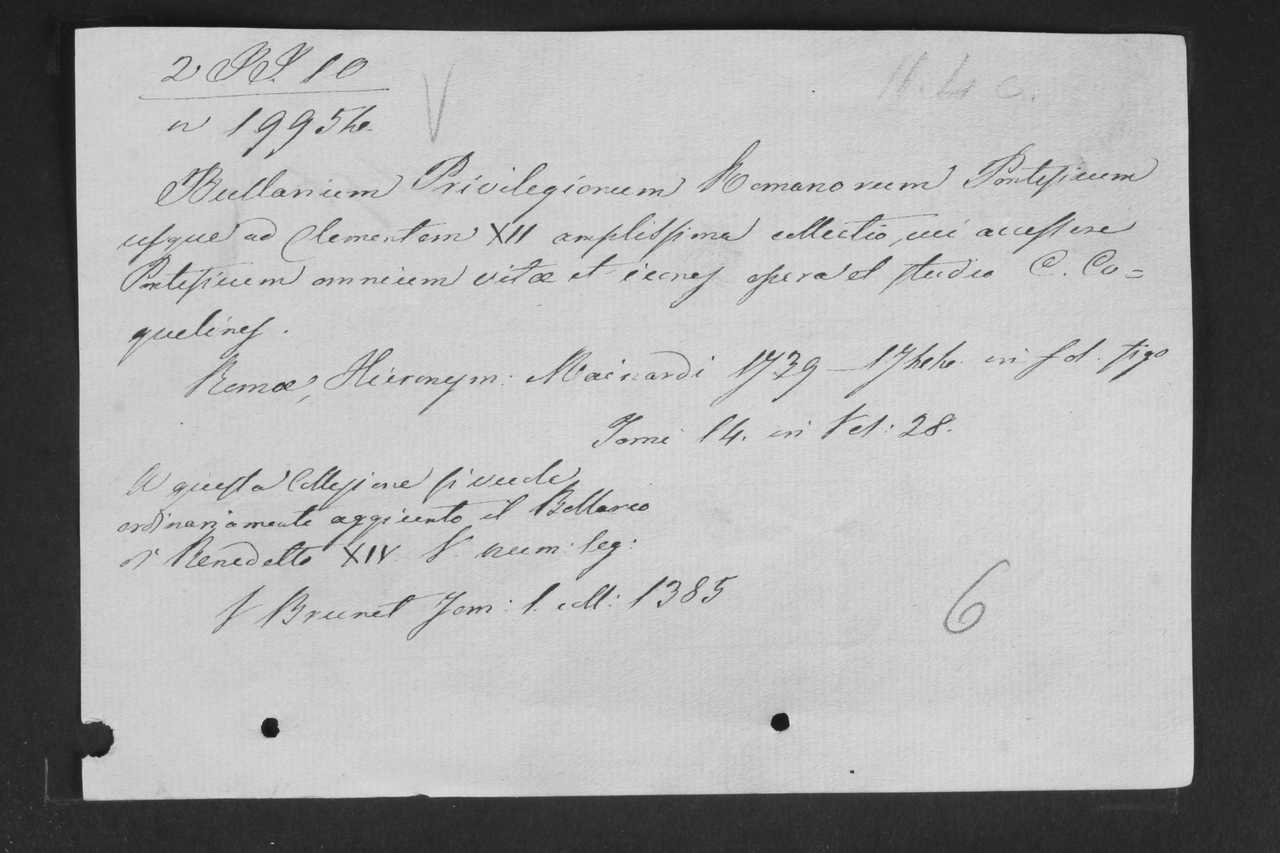 2 PP. 10
n 19954
V
Bullarium Privilegiorum Romanorum Pontificum
usque ad Clementem XII amplissima collectio, cui accessere
Pontificum omnium vitæ et icones opera et studio C. Co=
quelines.
Romæ, Hieronym: Mainardi 1739 – 1744 in fol. figo
Tomi 14. in Vol: 28.
A questa Collezione si vende
ordinariamente aggiunto il Bollario
di Benedetto XIV V num: seg:
V Brunet Tom: 1. coll: 1385
6